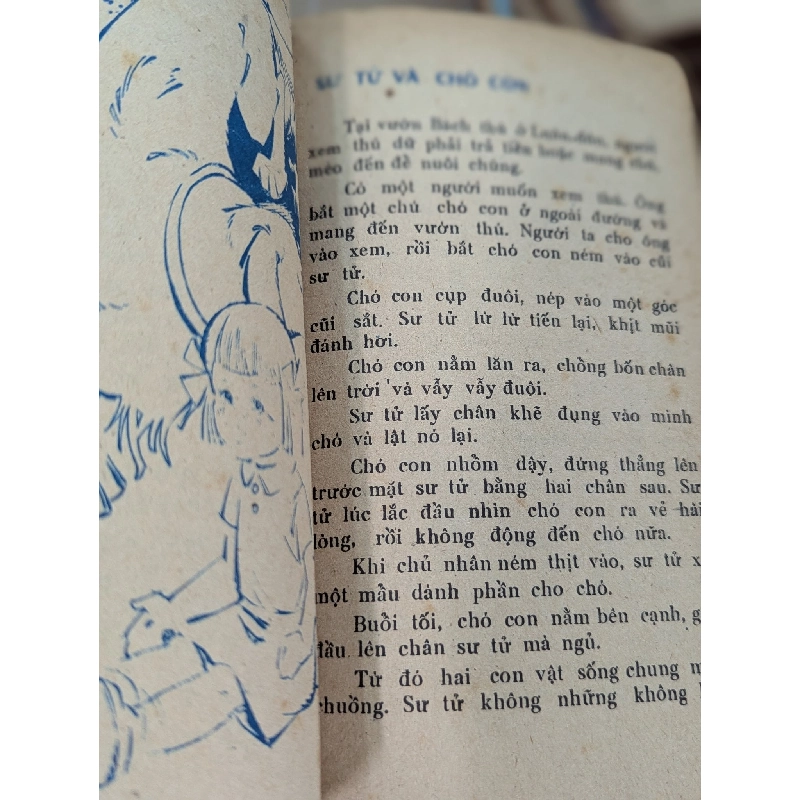 SƯ TỬ VÀ CHÓ CON
Tại vườn Bách thú ở Luân-đôn, người
xem thú dữ phải trả tiền hoặc mang chó,
mèo đến để nuôi chúng.
Có một người muốn xem thú. Ông
bắt một chú chó con ở ngoài đường và
mang đến vườn thú. Người ta cho ông
vào xem, rồi bắt chó con ném vào cũi
sư tử.
Chó con cụp đuôi, nép vào một góc
cũi sắt. Sư tử lừ lừ tiến lại, khịt mũi
đánh hơi.
Chó con nằm lăn ra, chồng bốn chân
lên trời và vẫy vẫy đuôi.
Sư tử lấy chân khẽ đụng vào mình
chó và lật nó lại.
Chó con nhồm dậy, đứng thẳng lên
trước mặt sư tử bằng hai chân sau. Sư
tử lúc lắc đầu nhìn chó con ra vẻ hài
lòng, rồi không động đến chó nữa.
Khi chủ nhân ném thịt vào, sư tử x
một mẩu dành phần cho chó.
Buổi tối, chó con nằm bên cạnh, g
đầu lên chân sư tử mà ngủ.
Từ đó hai con vật sống chung m
chuồng. Sư tử không những không